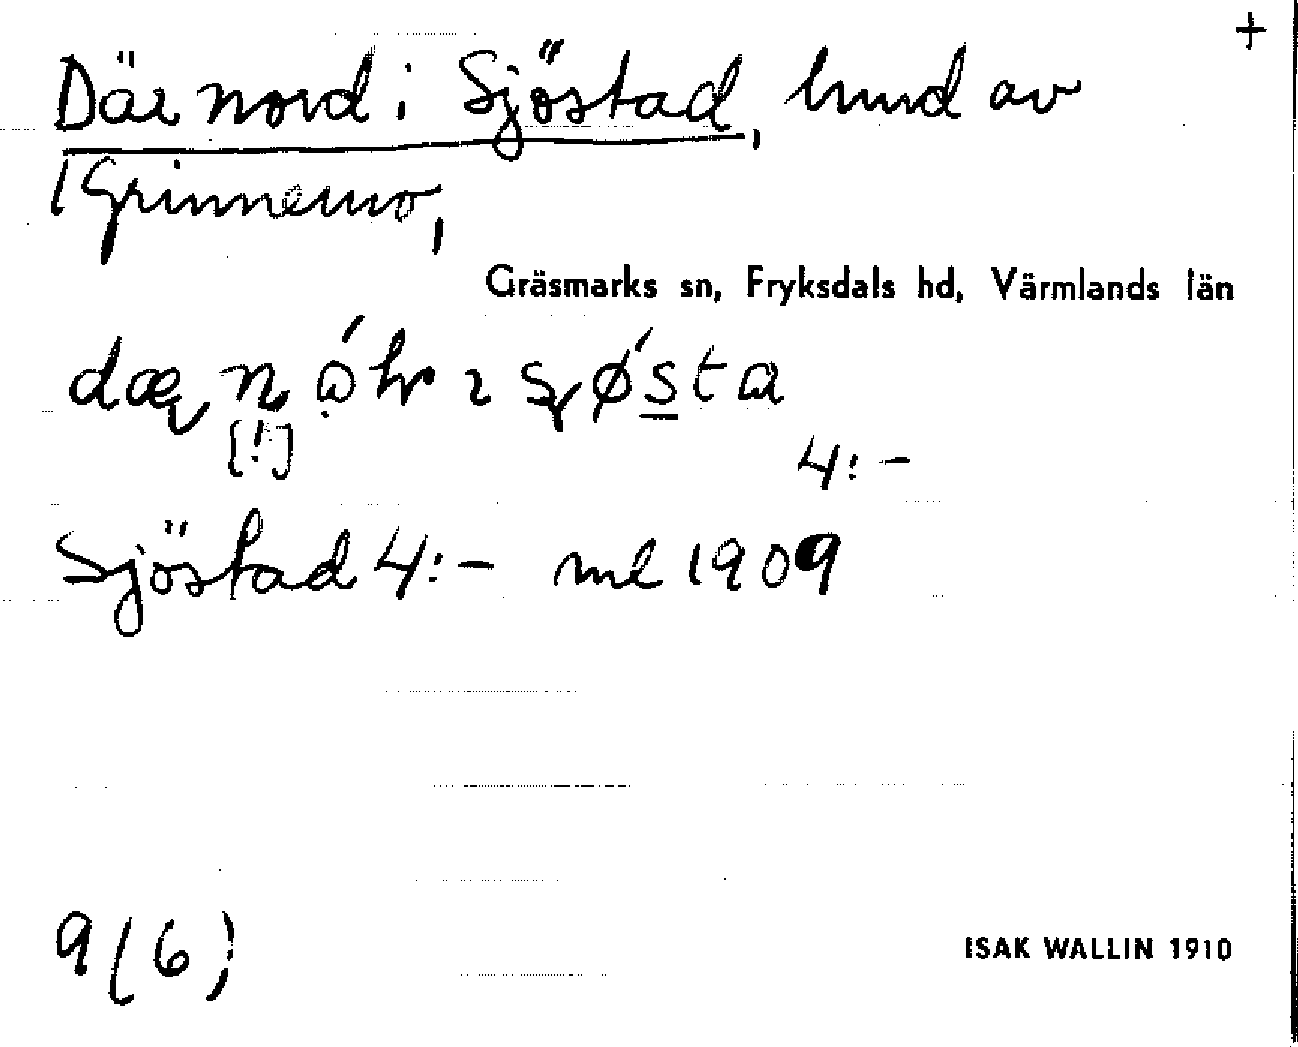 +
Där nord i Sjöstad, hmd av
1 Grinnemo,
Gräsmarks sn, Fryksdals hd, Värmlands län
[!]
4:-
Sjöstad 4:- ml 1909
9(6)
ISAK WALLIN 1910